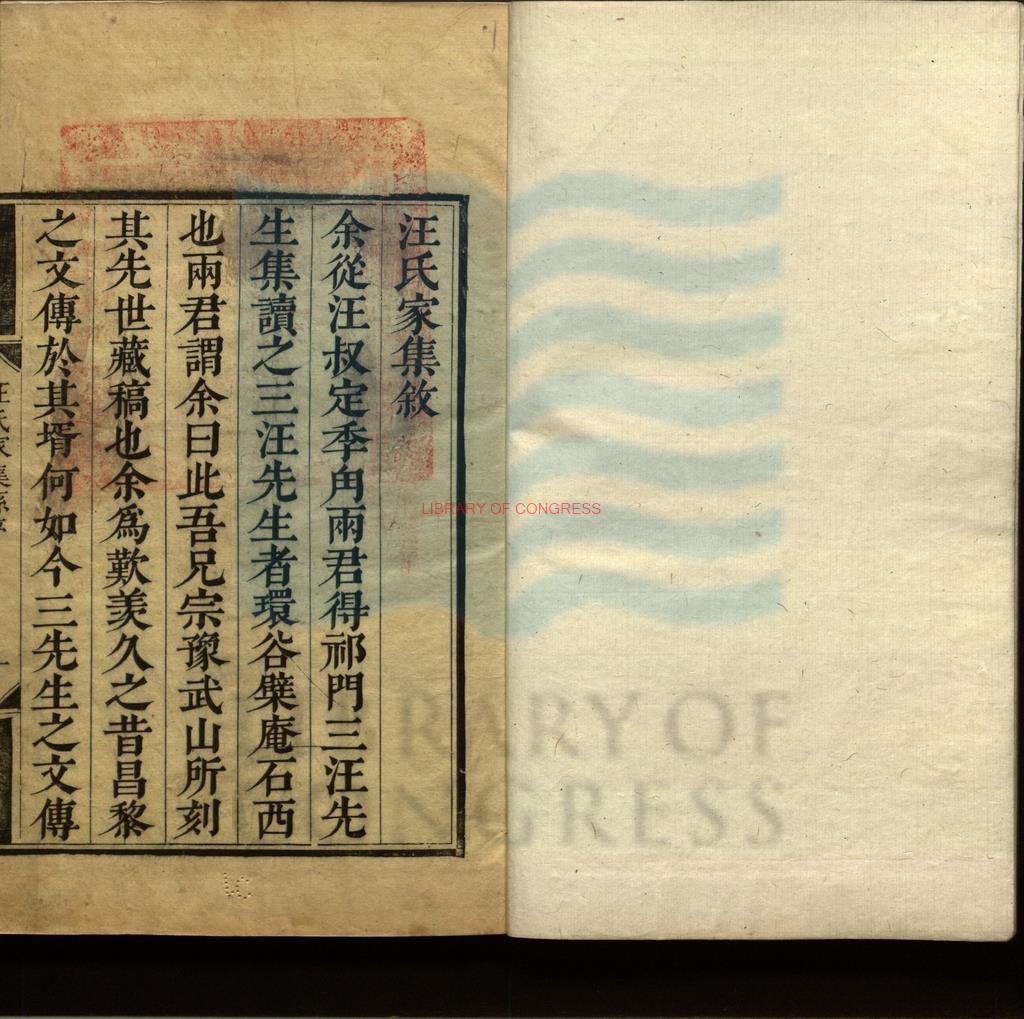 汪氏家集敘
余從汪叔定季甪兩君得祁門三汪先
生集讀之三汪先生者環谷檗庵石西
也兩君謂余曰此吾兄宗豫武山所刻
其先世藏稿也余為歎羨久之昔昌黎
之文傳於其壻何如今三先生之文傳
LIBRARY OF CONGRESS
RARY OF
NGRESS